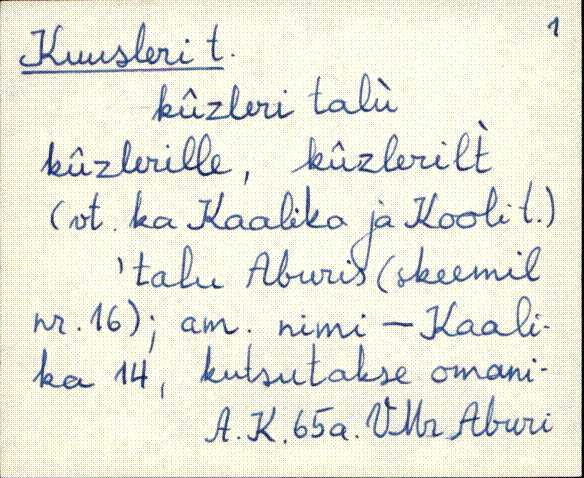 1
Kuusleri t.
kûzleri talù
kûzlerille, kûzlerilt̀
(vt. ka Kaalika ja Kooli t.)
'talu Aburis (skeemil
nr. 16); am. nimi – Kaali-
ka 14, kutsutakse omani-
A.K. 65a. VMr Aburi